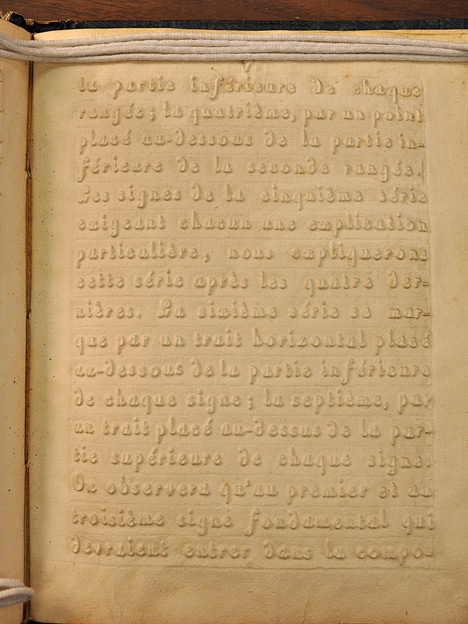 V
la partie inférieure de chaque
rangée; la quatrième, par un point
placé au-dessous de la partie in-
férieure de la seconde rangée.
Les signes de la cinquième série
exigeant chacun une explication
particulière, nous expliquerons
cette série après les quatre der-
nières. La sixième série se mar-
que par un trait horizontal placé
au-dessous de la partie inférieure
de chaque signe; la septième, par
un trait placé au-dessus de la par-
tie supérieure de chaque signe.
On observera qu'au premier et au
troisième signe fondamental qui
devraient entrer dans la compo-